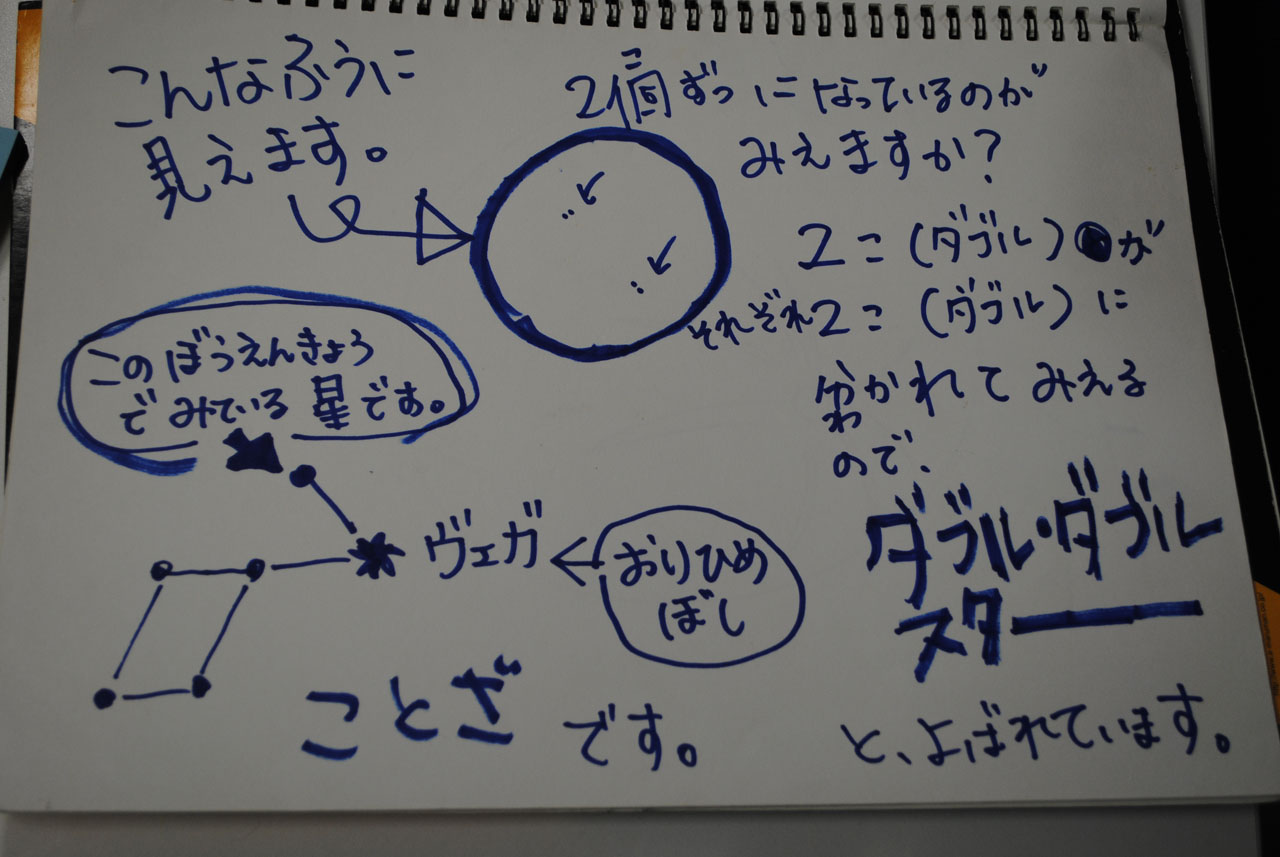 こんなふうに
見えます。
2個ずつになっているのが
こ
みえますか?
2こ(ダブル)が
それぞれ2こ(ダブル)に
分かれてみえる
わ
ので、
ダブル・ダブル
スター
と、よばれています。
このぼうえんきょう
でみている星です。
ヴェガ
おりひめ
ぼし
ことざです。